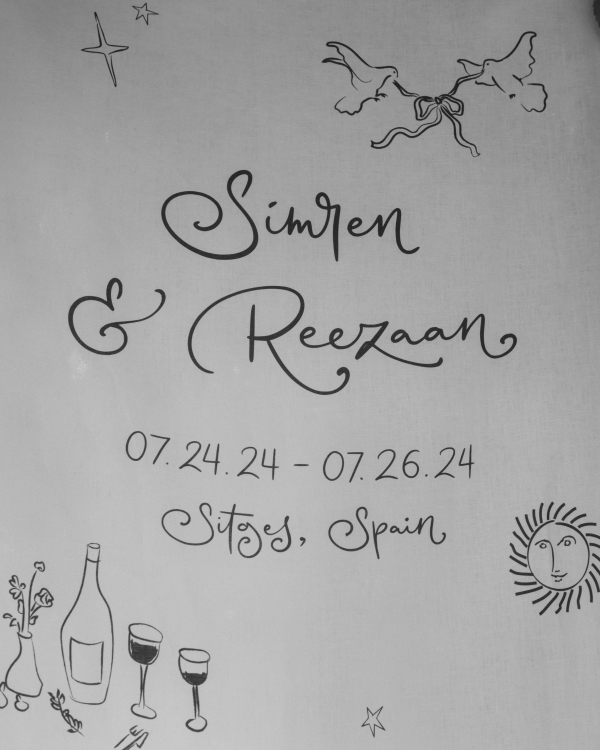 Simren
& Reezaan
07.24.24 - 07.26.24
Sitges, Spain